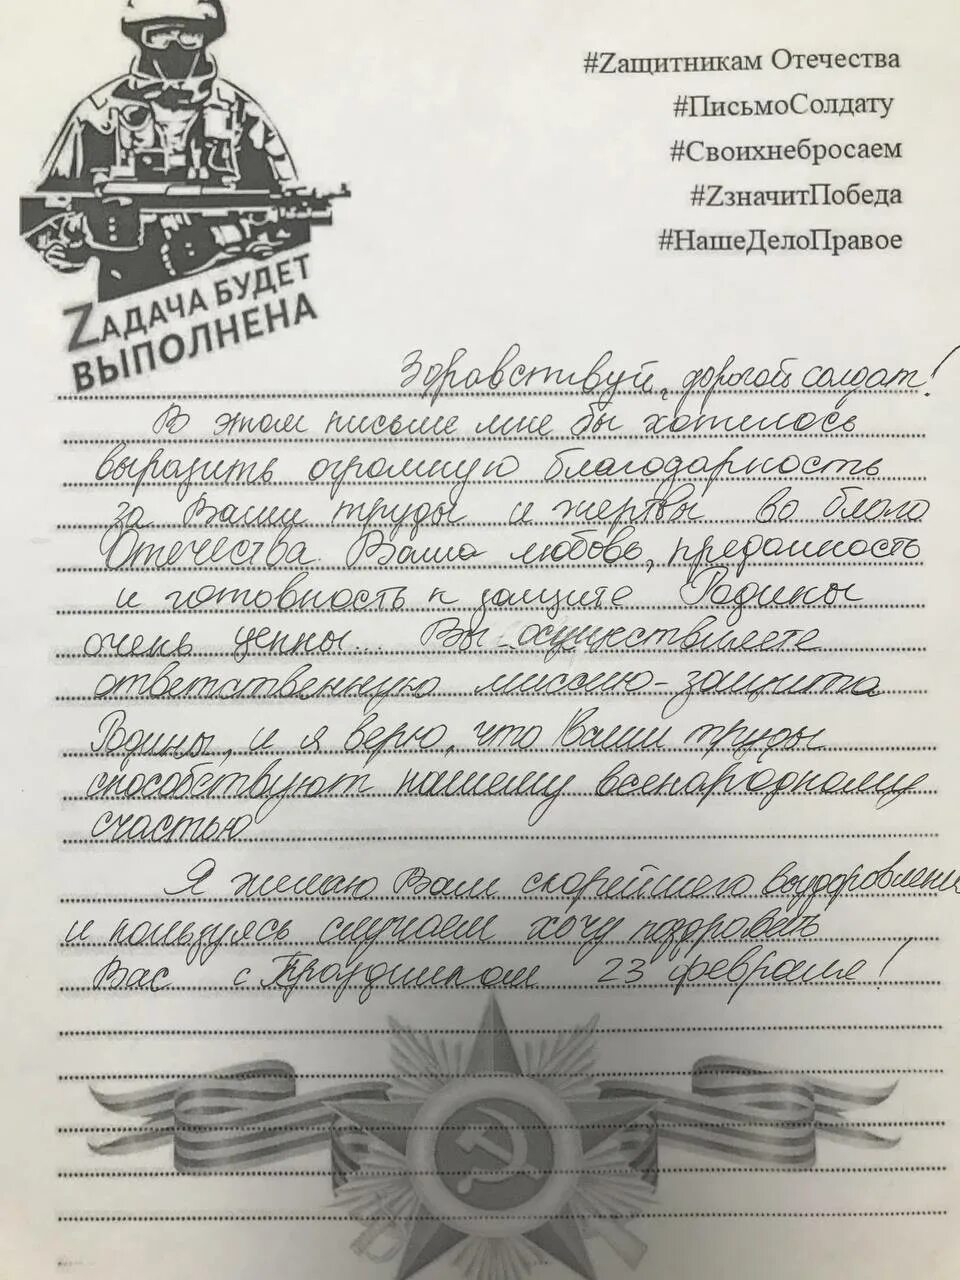 #Zащитникам Отечества
#ПисьмоСолдату
#Своихнебросаем
#ZзначитПобеда
#НашеДелоПравое
Zадача будет
выполнена
Здравствуй, дорогой солдат!
В этом письме мне бы хотелось
выразить огромную благодарность
за Ваши труды и жертвы во благо
Отечества. Ваша любовь, преданность
и готовность к защите Родины
очень ценны... Вы осуществляете
ответственную миссию - защита
Родины, и я верю, что Ваши труды
способствуют нашему всенародному
счастью
Я желаю Вам скорейшего выздоровления
и пользуясь случаем хочу поздравить
Вас с Праздником 23 февраля!